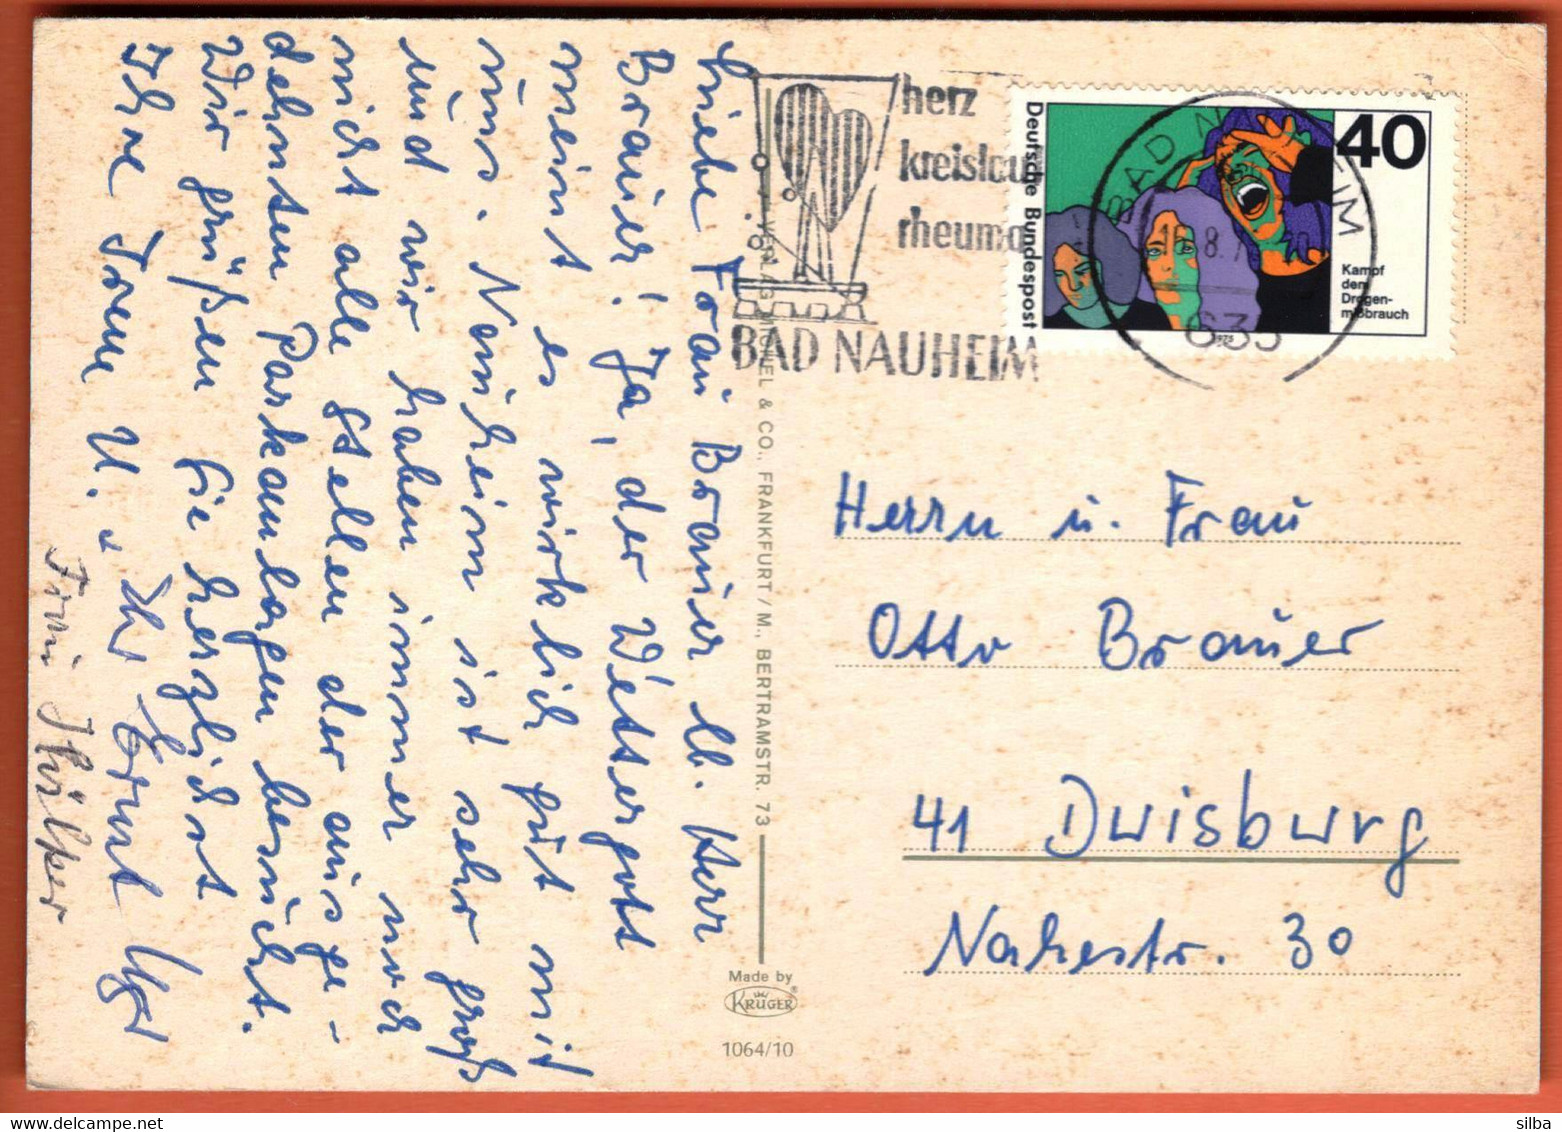 Liebe Frau Brauer lb. Herr
Brauer! Ja, der Wettergott
meint es wirklich gut mit
uns. Nauheim ist sehr groß
und wir haben immer noch
nicht alle Stellen der ausge-
dehnten Parkanlagen besucht.
Wir grüßen Sie herzlichst
Ihre Irene U. u. Ihr Ernst
Frau
herz
kreislauf
rheuma
BAD NAUHEIM
BAD NAUHEIM
16.8.
635
Deutsche Bundespost
40
Kampf
dem
Drogen-
mißbrauch
1975
VERLAG MICHEL & CO., FRANKFURT/M., BERTRAMSTR. 73
Herrn u. Frau
Otto Brauer
41 Duisburg
Nahestr. 30
Made by
KRÜGER
1064/10
silba